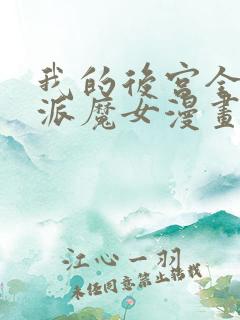 我的後宮全
派魔女漫畫
江心一羽
未經同意禁止轉載